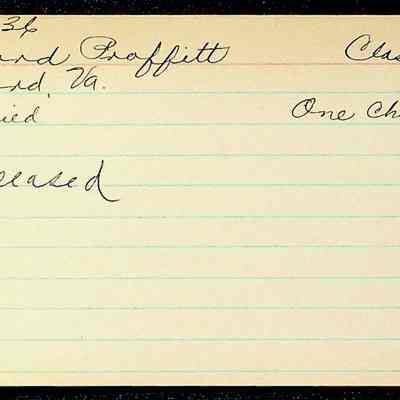 36
ard Proffitt Clas
ard, Va.
ied One Ch
ceased